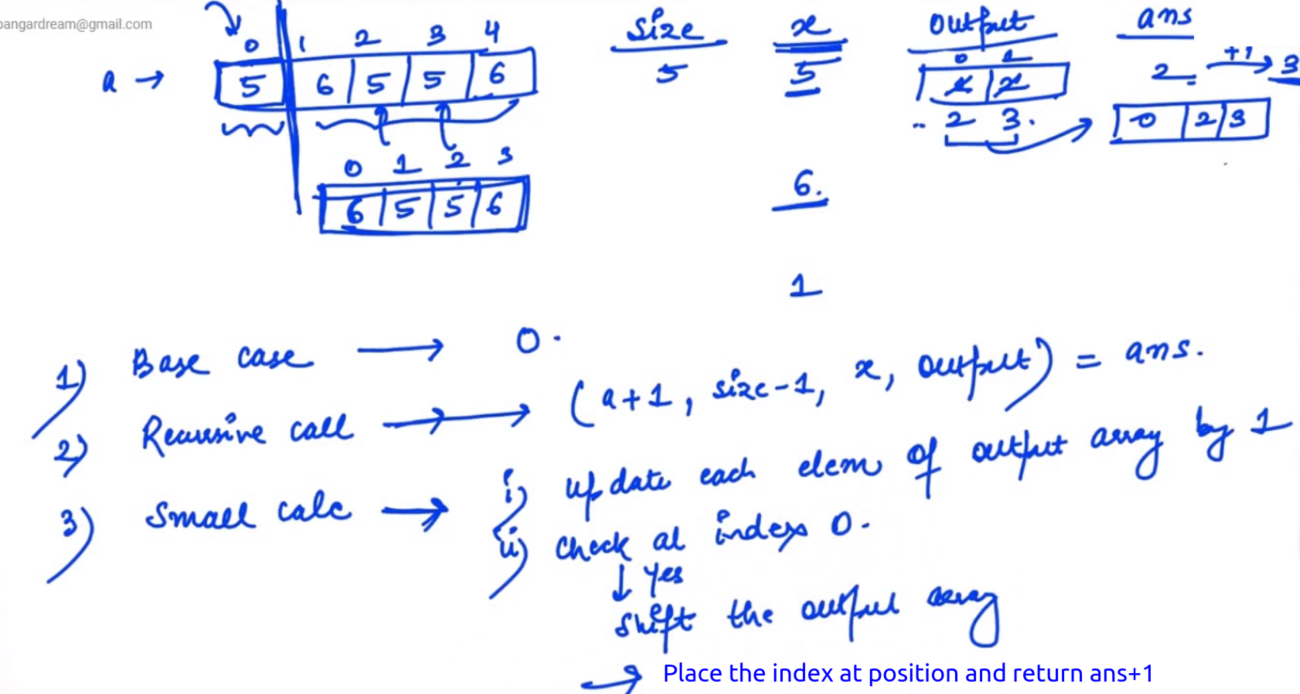 pangardream@gmail.com
size x output ans
0 1 2 3 4
a → 5 6 5 5 6
5 5 0 1
1 2
2 +1 → 3
.. 2 3.
0 2 3
0 1 2 3
6 5 5 6
6.
1
1) Base case → 0.
2) Recursive call → (a+1, size-1, x, output) = ans.
3) Small calc → i) update each elem of output array by 1
ii) check at index 0.
↓ yes
shift the output array
→ Place the index at position and return ans+1